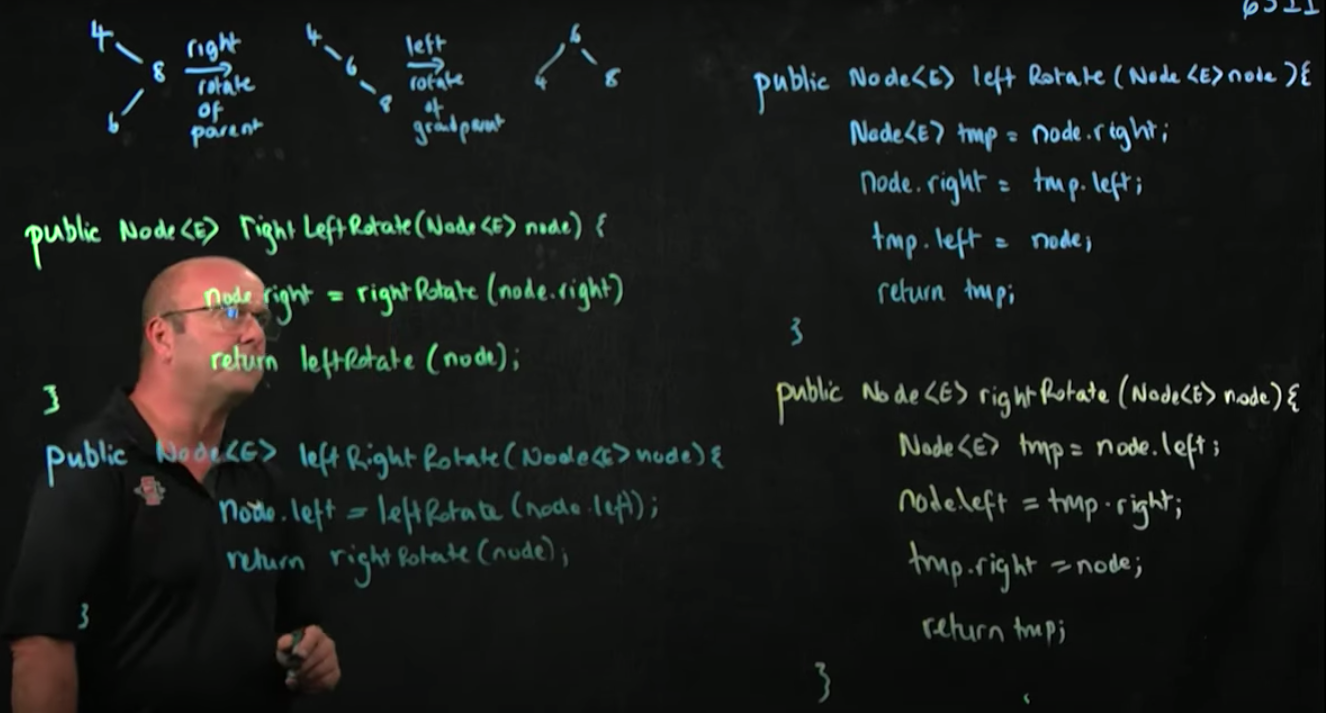 4
8
6
right
rotate
of
parent
4
6
8
left
rotate
of
grandparent
6
4
8
public Node<E> rightLeftRotate(Node<E> node) {
node.right = rightRotate (node.right)
return leftRotate (node);
}
public Node<E> leftRightRotate(Node<E> node){
node.left = leftRotate (node.left);
return rightRotate (node);
}
public Node<E> leftRotate (Node<E> node ){
Node<E> tmp = node.right;
node.right = tmp.left;
tmp.left = node;
return tmp;
}
public Node<E> rightRotate (Node<E> node){
Node<E> tmp = node.left;
node.left = tmp.right;
tmp.right = node;
return tmp;
}